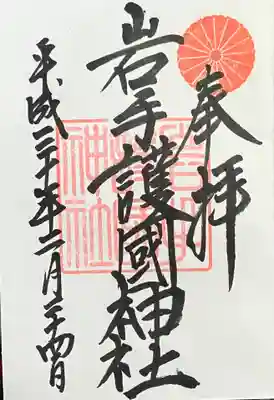 奉拝
岩手護國神社
平成三十年二月二十四日